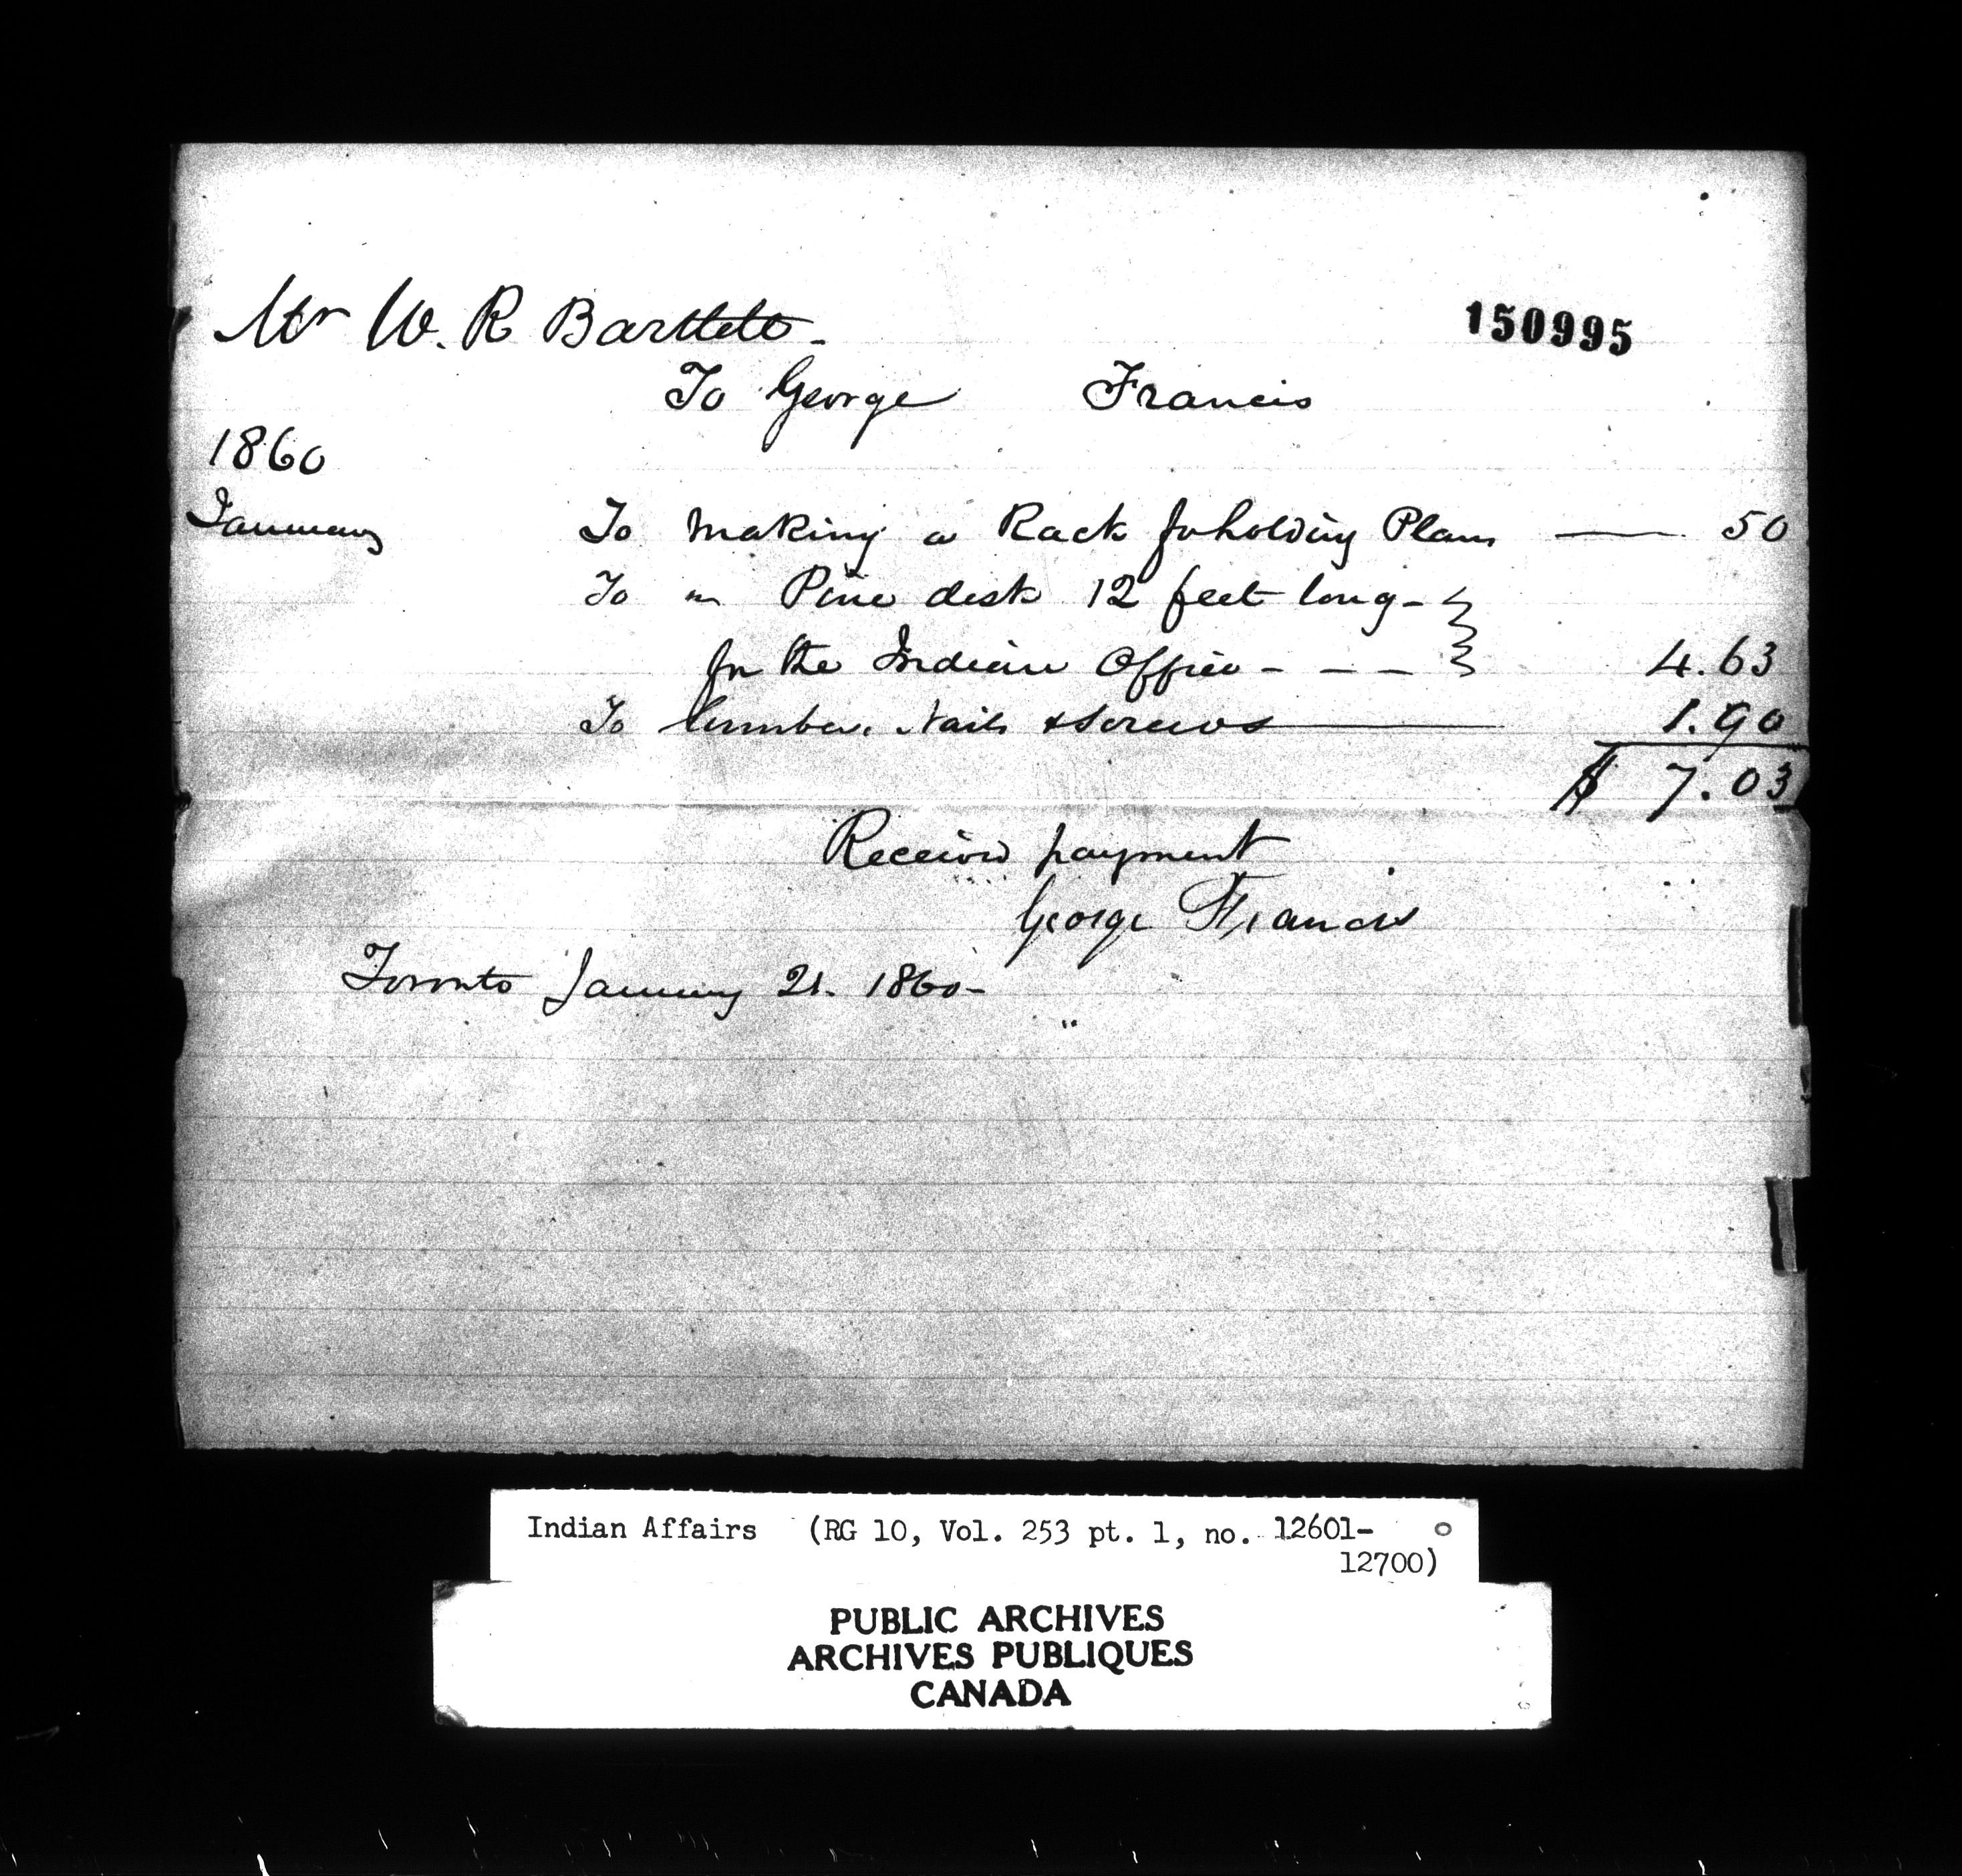 Mr W. R Bartlett -
150995
To George Francis
1860
January To making a Rack for holding Plans —— 50
To " Pine desk 12 feet long -
for the Indian Office - - - 4.63
To lumber, Nails & Screws —— 1.90
$ 7.03
Received payment
George Francis
Toronto January 21. 1860 -
Indian Affairs (RG 10, Vol. 253 pt. 1, no. 12601-
12700)
PUBLIC ARCHIVES
ARCHIVES PUBLIQUES
CANADA